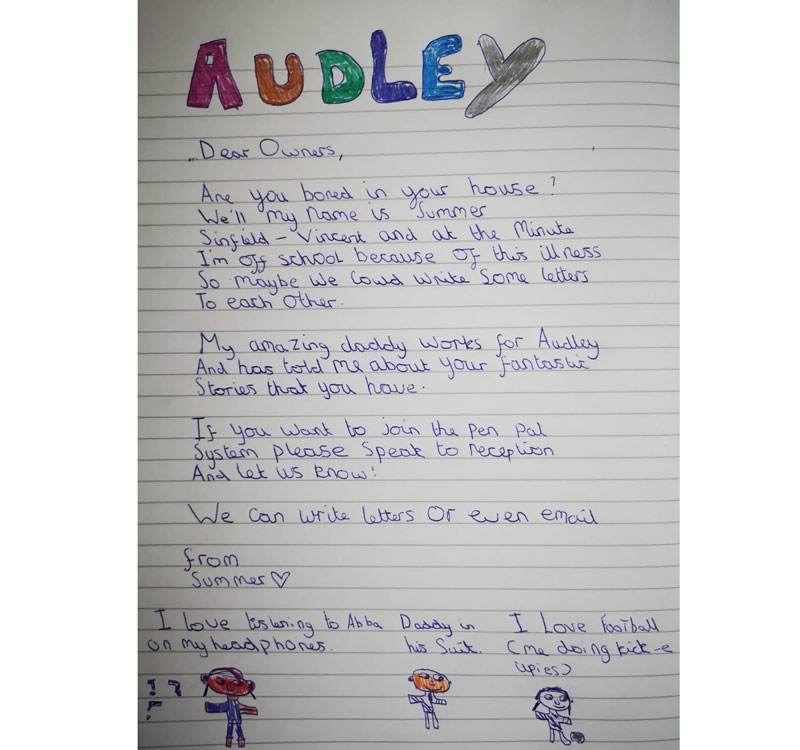 AUDLEY
Dear Owners,
Are you bored in your house?
We'll my name is Summer
Sinfield - Vincent and at the Minute
I'm off school because of this illness
So maybe we Could write Some letters
To each other.
My amazing daddy works for Audley
And has told me about your fantastic
Stories that you have.
If you want to join the pen pal
System please Speak to reception
And let us know!
We can write letters Or even email
from
Summer♡
I love listening to Abba
on my headphones.
Daddy in
his Suit.
I Love football
(me doing kick-e
upies)